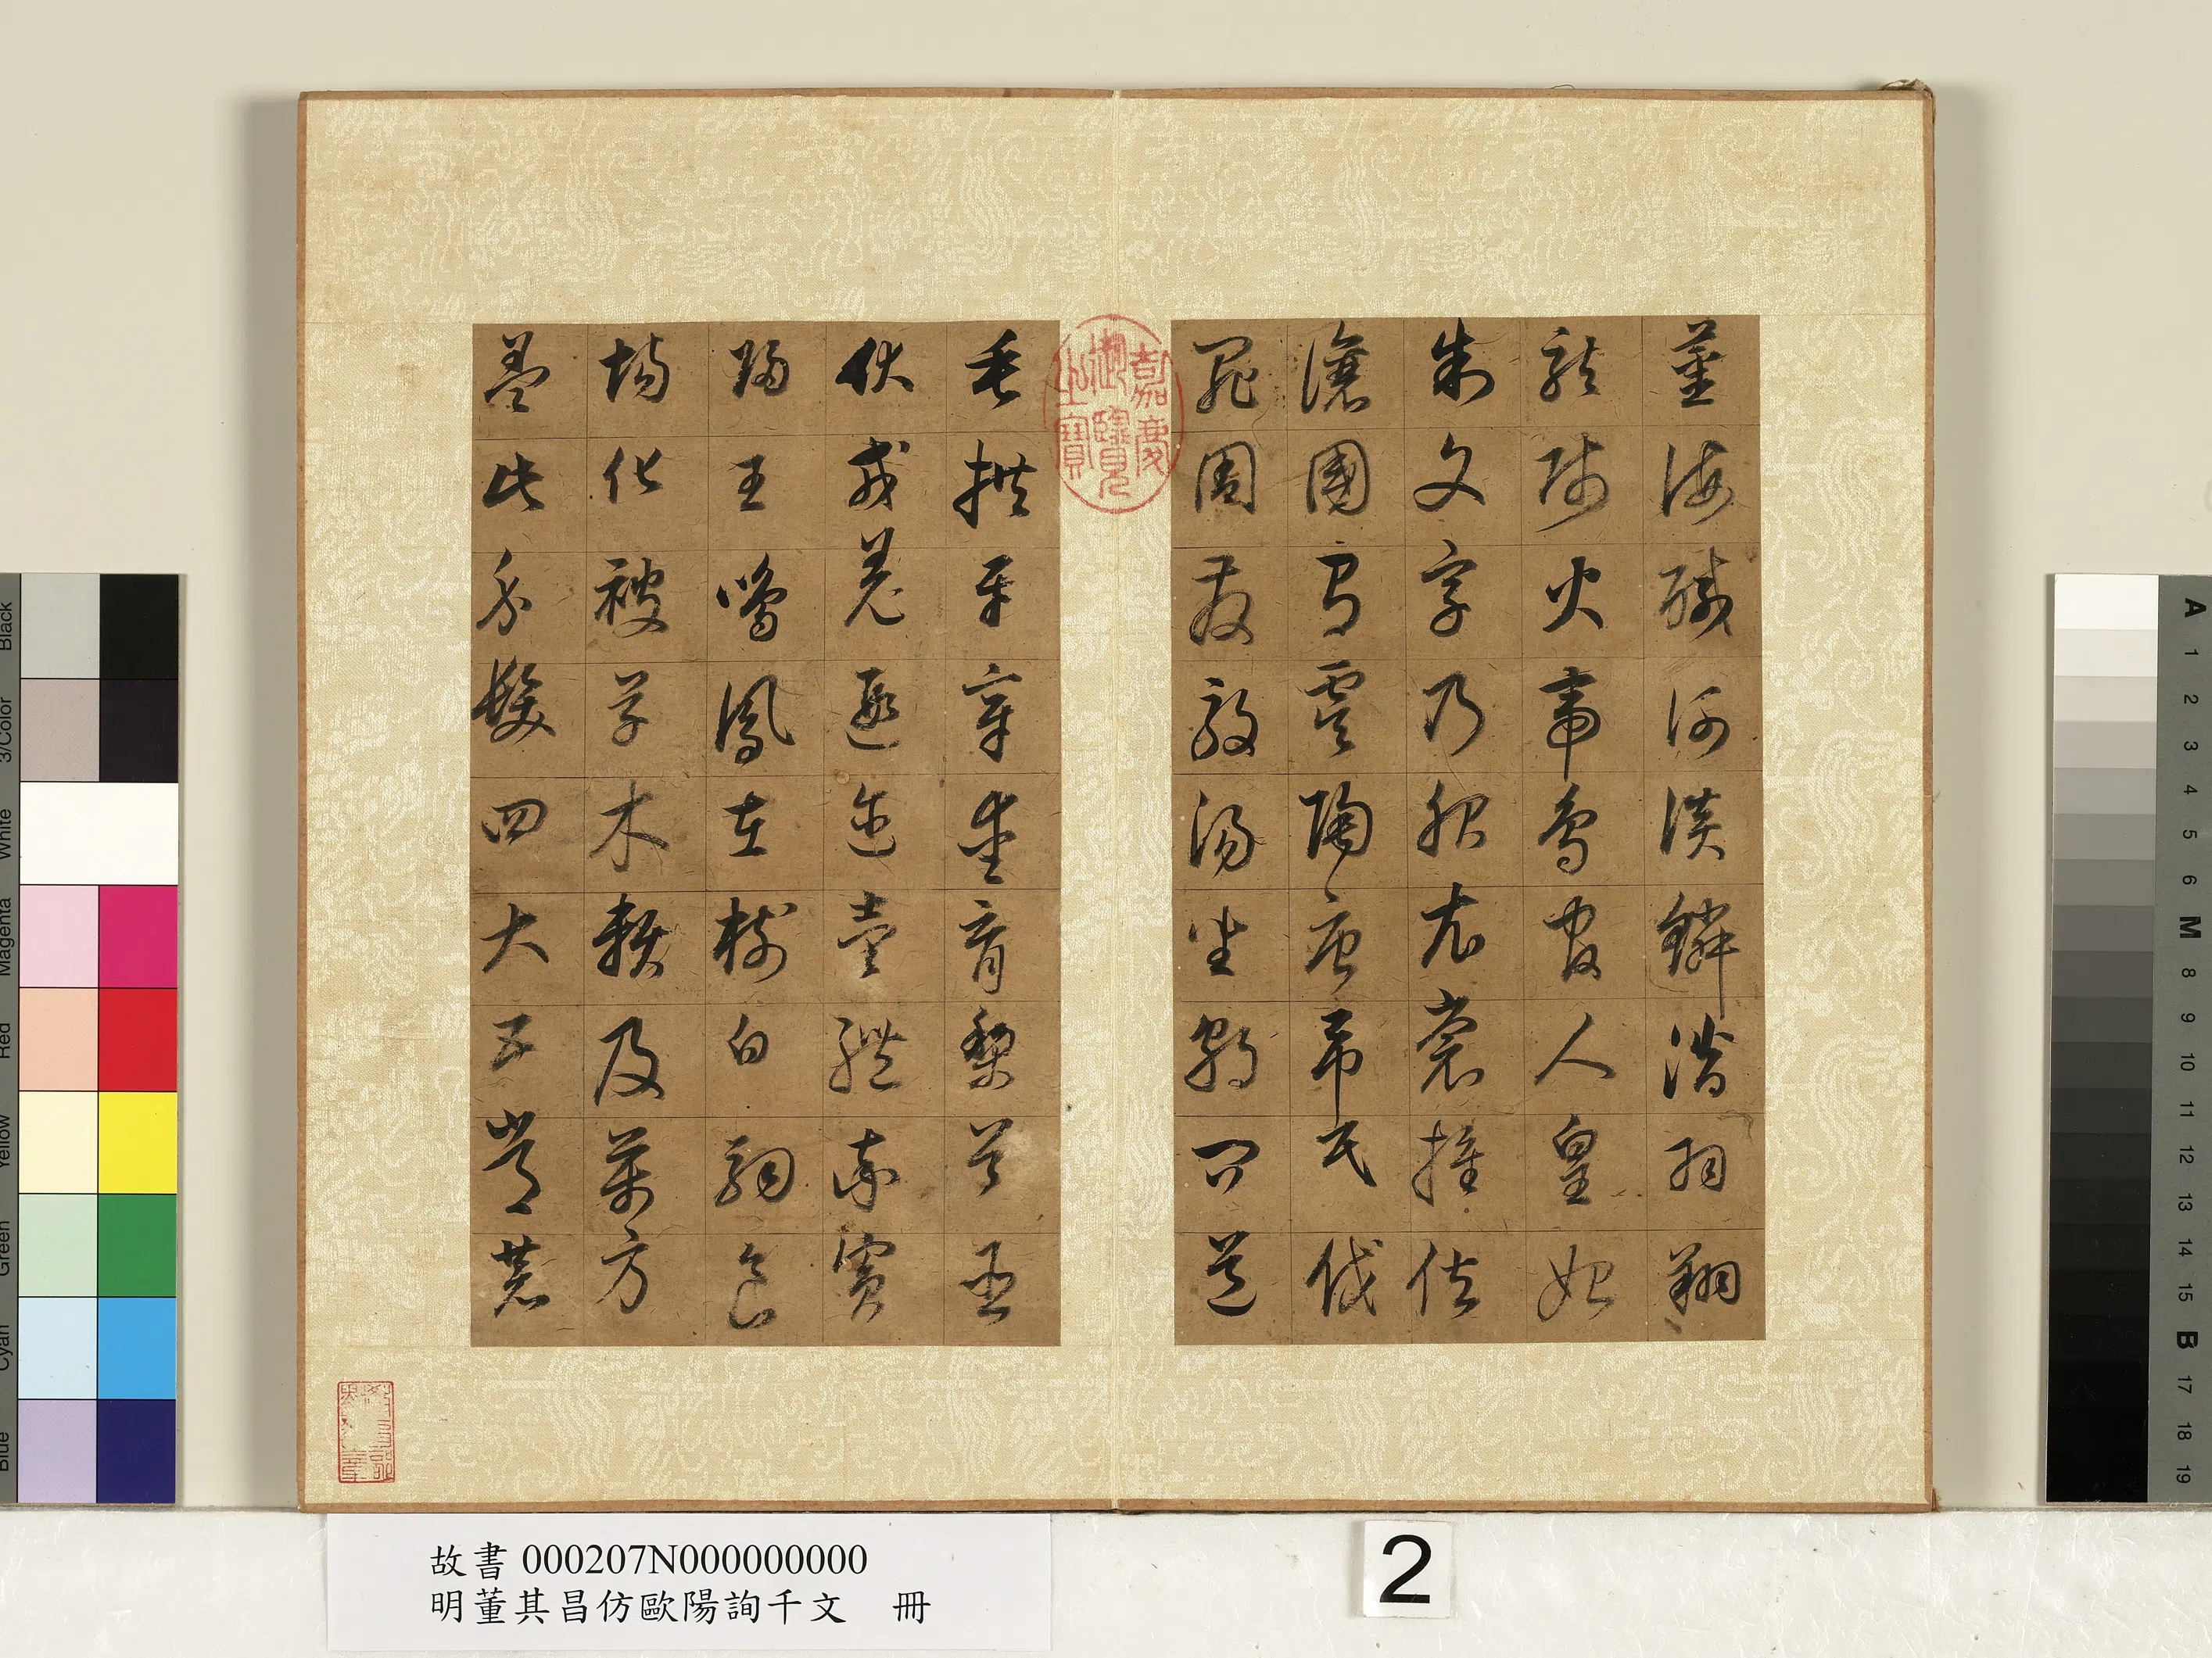 薑海鹹河淡鱗潛羽翔
龍師火帝鳥官人皇始
制文字乃服衣裳推位
讓國有虞陶唐弔民伐
罪周發殷湯坐朝問道
嘉慶御覽之寶
垂拱平章愛育黎首臣
伏戎羌遐邇壹體率賓
歸王鳴鳳在樹白駒食
場化被草木賴及萬方
蓋此身髮四大五常恭
故書 000207N000000000
明董其昌仿歐陽詢千文 冊
2
Black
3/Color
White
Magenta
Red
Yellow
Green
Cyan
Blue
A 1 2 3 4 5 6 M 8 9 10 11 12 13 14 15 B 17 18 19